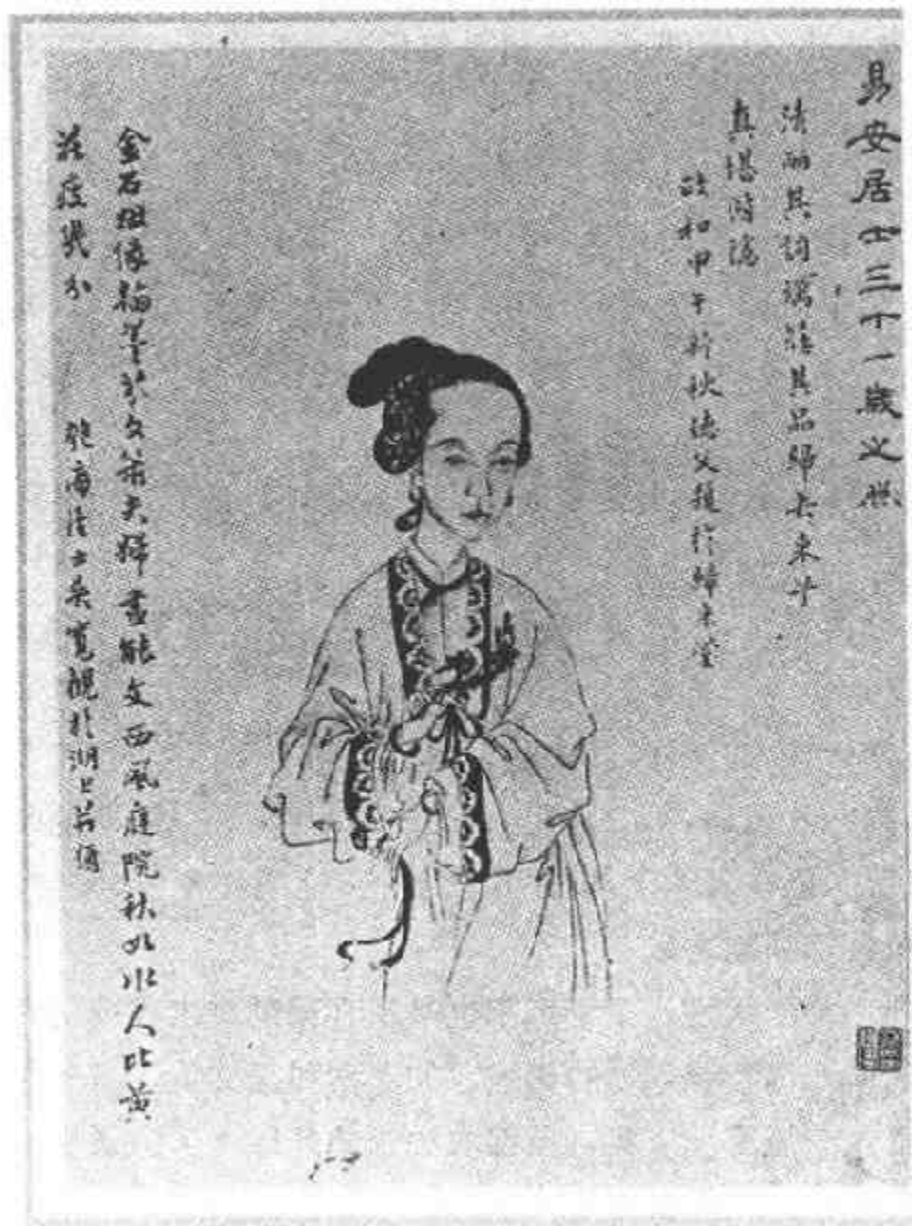 易安居士三十一歲之照
清麗其詞端莊其品歸去來兮
真堪偕隱
政和甲午新秋德父題於歸來堂
金石姻緣翰墨芬文簫夫婦盡能文西風庭院秋如水人比黃
花瘦幾分 匏庵居士吳寬觀於湖上并題